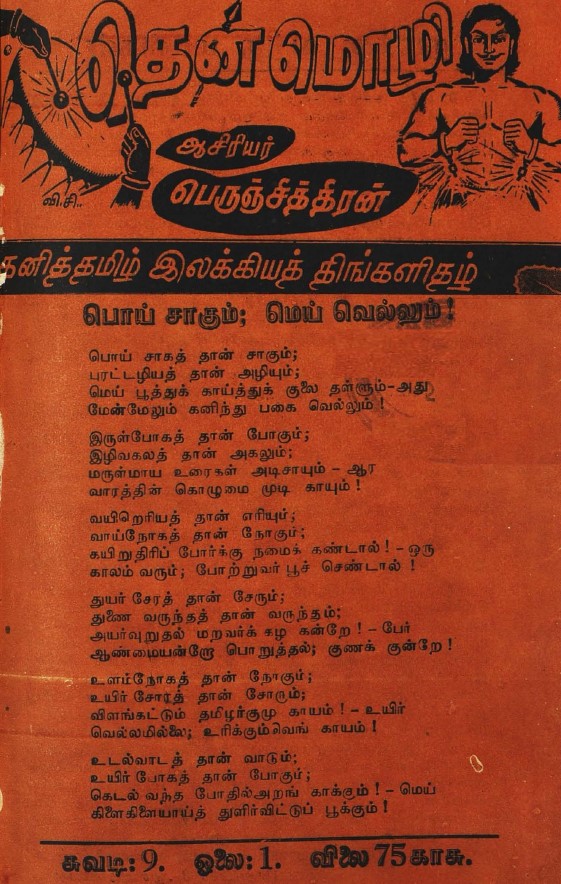 தென்மொழி
ஆசிரியர்
பெருஞ்சித்திரன்
வி.சி..
தனித்தமிழ் இலக்கியத் திங்களிதழ்
பொய் சாகும்; மெய் வெல்லும்!
பொய் சாகத் தான் சாகும்;
புரட்டழியத் தான் அழியும்;
மெய் பூத்துக் காய்த்துக் குலை தள்ளும்-அது
மேன்மேலும் கனிந்து பகை வெல்லும்!
இருள்போகத் தான் போகும்;
இழிவகலத் தான் அகலும்;
மருள்மாய உரைகள் அடிசாயும் - ஆர
வாரத்தின் கொழுமை முடி காயும்!
வயிறெரியத் தான் எரியும்;
வாய்நோகத் தான் நோகும்;
கயிறுதிரிப் போர்க்கு நமைக் கண்டால்! - ஒரு
காலம் வரும்; போற்றுவர் பூச் செண்டால்!
துயர் சேரத் தான் சேரும்;
துணை வருந்தத் தான் வருந்தும்;
அயர்வுறுதல் மறவர்க் கழ கன்றே! - பேர்
ஆண்மையன்றோ பொறுத்தல்; குணக் குன்றே!
உளம்நோகத் தான் நோகும்;
உயிர் சோரத் தான் சோரும்;
விளங்கட்டும் தமிழர்குமு காயம்! - உயிர்
வெல்லமில்லை; உரிக்கும்வெங் காயம்!
உடல்வாடத் தான் வாடும்;
உயிர் போகத் தான் போகும்;
கெடல் வந்த போதில்அறங் காக்கும்! - மெய்
கிளைகிளையாய்த் துளிர்விட்டுப் பூக்கும்!
சுவடி: 9. ஓலை: 1. விலை 75 காசு.